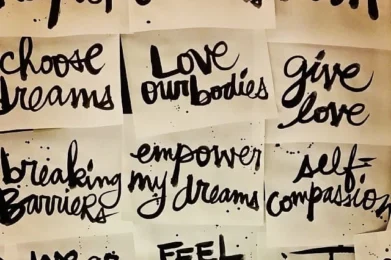 choose
dreams
Love
our bodies
give
love
breaking
Barriers
empower
my dreams
self-
compassion
FEEL